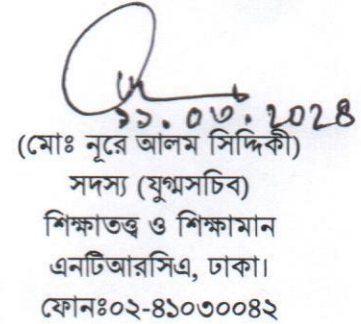 ১১.০৩.২০২৪
(মোঃ নূরে আলম সিদ্দিকী)
সদস্য (যুগ্মসচিব)
শিক্ষাতত্ত্ব ও শিক্ষামান
এনটিআরসিএ, ঢাকা।
ফোনঃ০২-৪১০৩০০৪২